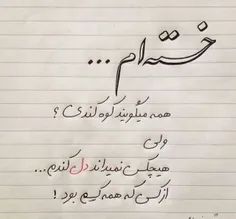 خسته ام ...
همه میگویند کوه کندی ؟
ولی
هیچکس نمیداند دل کندم...
از کسی که همه کسم بود !